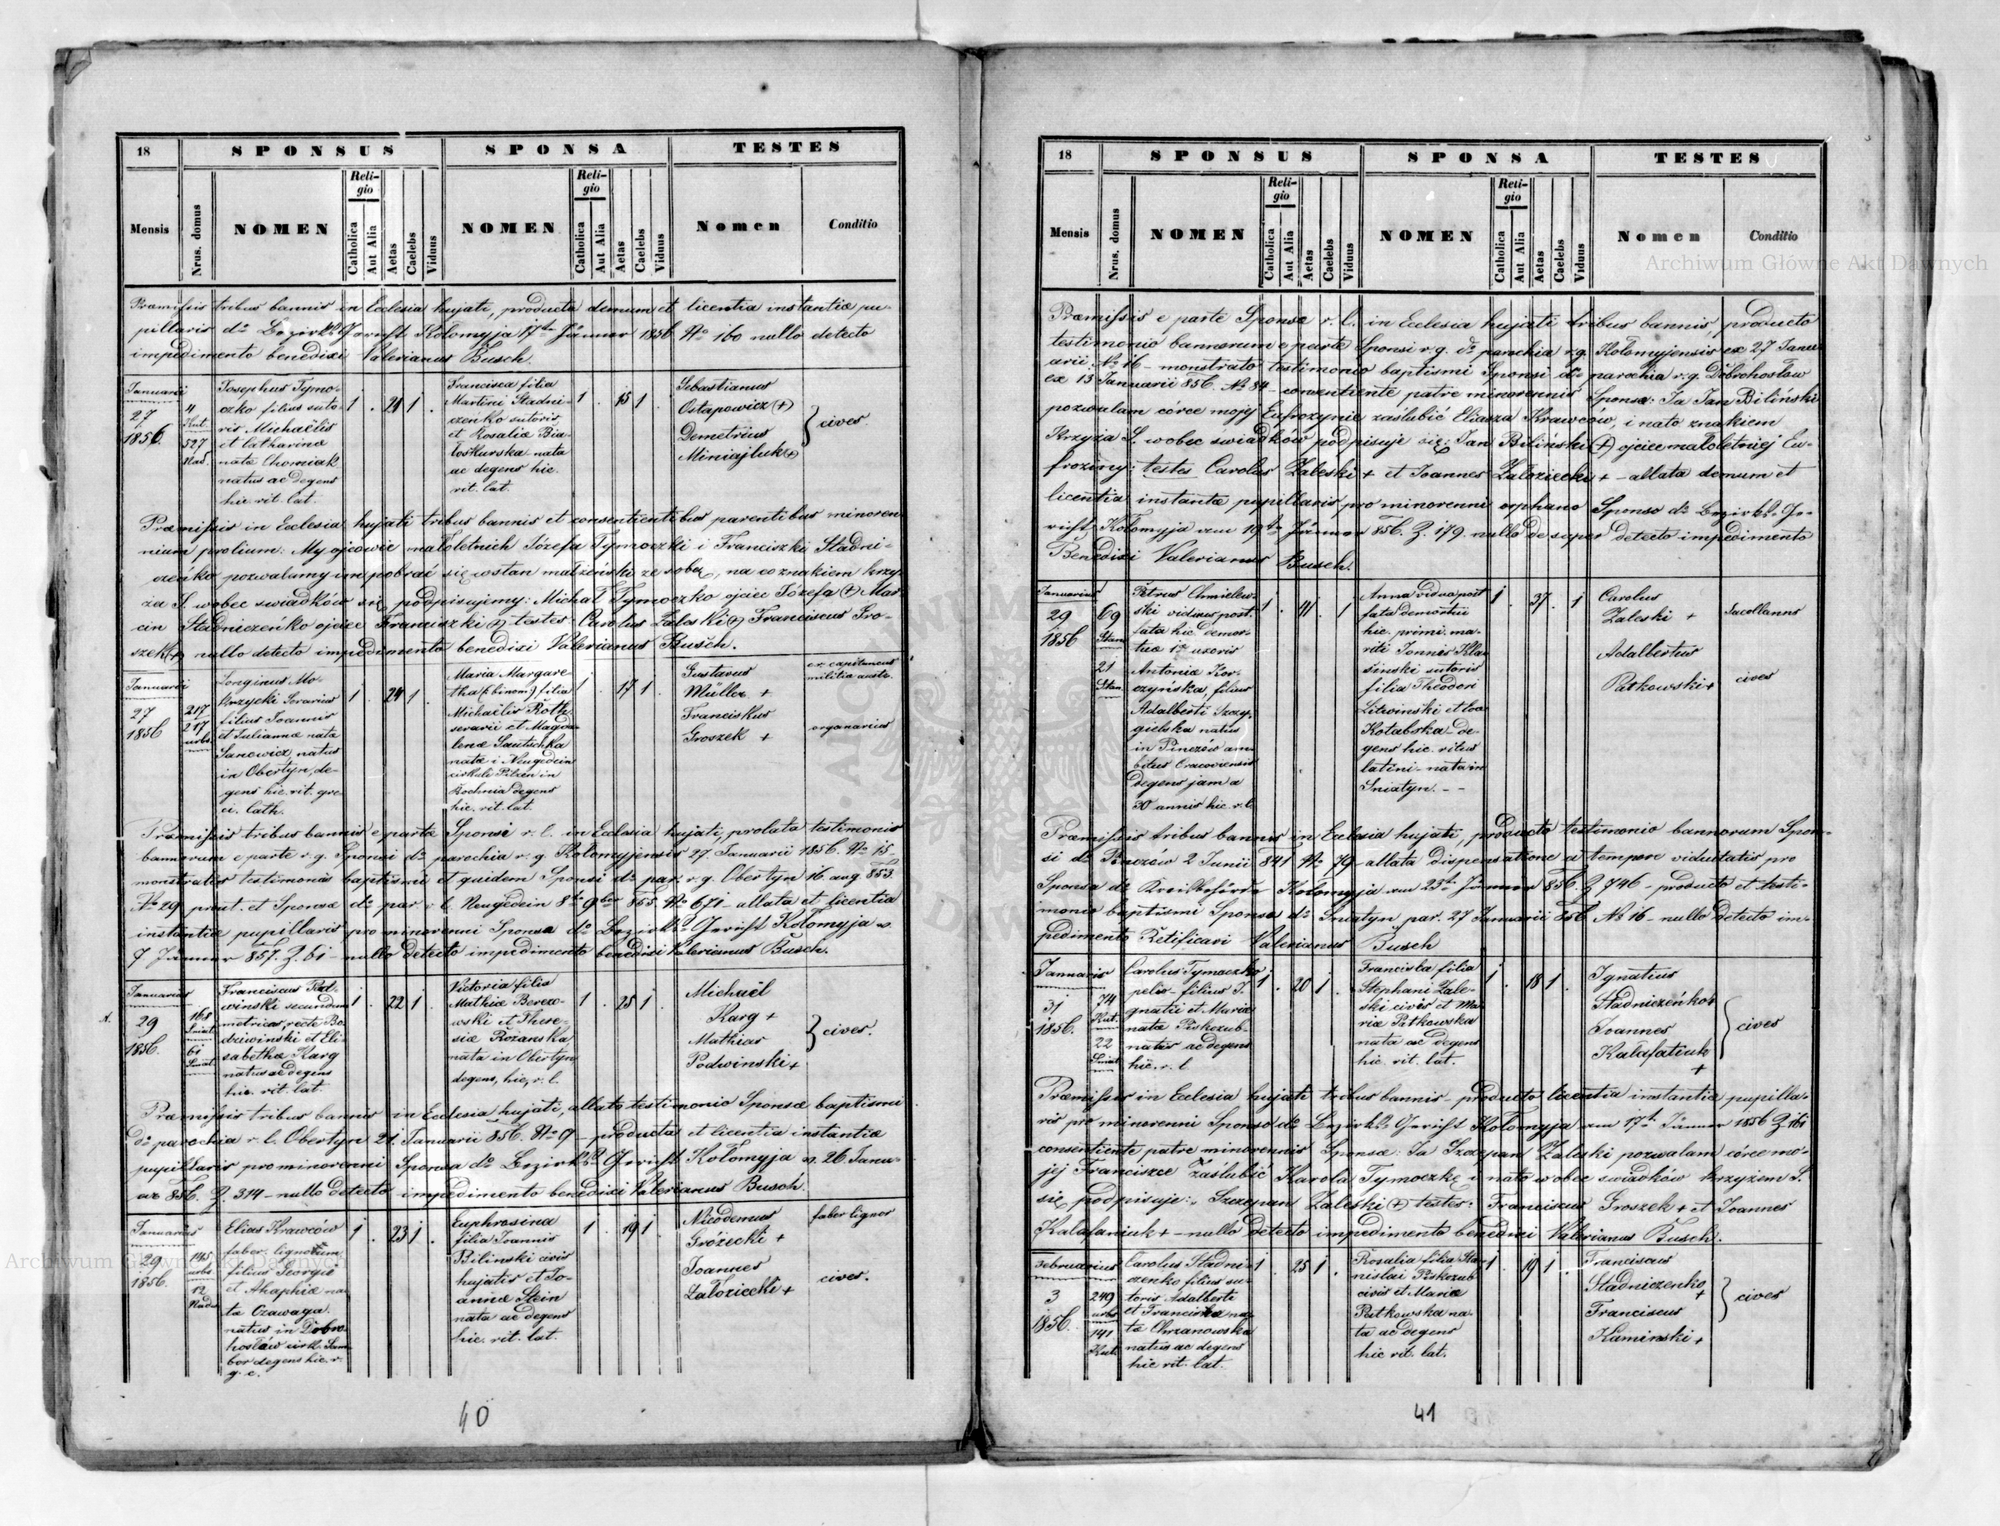 18 SPONSUS SPONSA TESTES
Mensis Nrus. domus NOMEN Religio Catholica Aut Alia Aetas Caelebs Viduus NOMEN Religio Catholica Aut Alia Aetas Caelebs Viduus Nomen Conditio
Praemissis tribus bannis in Ecclesia hujati, producta demum et licentia instantiae pu-
pillaris dto Bezirks Gericht Kolomyja 17te Jänner 1856 No 160 nullo detecto
impedimento benedixi Valerianus Busch.
Januarii
27
1856.
4
Kut.
527
Nad.
Josephus Tymo-
czko filius suto-
ris Michaëlis
et Catharinae
nata Chomiak
natus ac degens
hic. rit. lat.
1 . 21 1 .
Francisca filia
Martini Stadni-
czenko sutoris
et Rosaliae Bia-
łoskurska nata
ac degens hic.
rit. lat.
1 . 15 1 .
Sebastianus
Ostapowicz (+)
Demetrius
Miniajluk +
cives
Praemissis in Ecclesia hujati tribus bannis et consentientibus parentibus minoren
nium prolium: My ojcowie małoletnich Józefa Tymoczki i Franciszki Stadni-
czeńko pozwalamy im pobrać się w stan małżeński ze sobą, na co znakiem krzy-
ża S. wobec swiadków się podpisujemy: Michał Tymoczko ojciec Józefa (+) Mar-
cin Stadniczeńko ojciec Franciszki (+) testes Carolus Zaleski (+) Franciscus Gro-
szek (+) nullo detecto impedimento benedixi Valerianus Busch.
Januarii
27
1856
217
217
urbs.
Longinus Mo-
krzycki Serarius
filius Joannis
et Juliannae nata
Sanewicz, natus
in Obertyn, de-
gens hic. rit. gre-
ci. cath.
1 . 24 1 .
Maria Margare
tha (binom) filia
Michaëlis Roth
serarii et Magda-
lenae Sautschka
nata i Neugedein
cirkuli Pilzen in
Boehmia degens
hic. rit. lat.
1 . 17 1 .
Gustavus
Müller +
Franciskus
Groszek +
ex capitaneus
militiae austr.
organarius
Praemissis tribus bannis e parte Sponsae r. l. in Ecclesia hujati, prolata testimonio
bannorum e parte r. g. Sponsi dto parochia r. g. Kolomyjensis 27 Januarii 1856. No 15.
monstratis testimoniis baptismi et quidem Sponsi dto par. r. g. Obertyn 16 aug 853.
No 29 prout et Sponsae dto par. r. l. Neugedein 8te 9ber 855 No 671 - allata et licentia
instantiae pupillaris pro minorenni Sponsa dto Bezirks Gericht Kolomyja v.
7 Jänner 857. Z. 61 - nullo detecto impedimento benedixi Valerianus Busch.
Januarius
29
1856.
168
Sniat.
61
Sniat.
Franciscus Pod-
winski secundum
metricas, recte Bo-
dziwinski et Eli-
sabethae Karg
natus ac degens
hic. rit. lat.
1 . 22 1 .
Victoria filia
Mathiae Berezo-
wski et There-
siae Rozanska
nata in Obertyn
degens, hic, r. l.
1 . 25 1 .
Michaël
Karg +
Mathias
Podwinski +
cives.
Praemissis tribus bannis in Ecclesia hujati, allato testimonio Sponsae baptismi
Dto parochia r. l. Obertyn 21. Januarii 856. No 7 - producta et licentia instantiae
pupillaris pro minorenni Sponsa dto Bezirks Gericht Kolomyja v. 26 Janu-
ar 856. Z. 314 - nullo detecto impedimento benedixi Valerianus Busch.
Januarius
29
1856.
145
urbs.
12
Nads.
Elias Krawców
faber lignorum
filius Georgii
et Ahaphiae na-
ta Czawaga
natus in Dobro-
hostów cirk. Sam-
bor degens hic. r.
g. c.
1 . 23 1 .
Euphrosina
filia Joannis
Bilinski civis
hujatis et Jo-
annae Stein
nata ac degens
hic. rit. lat.
1 . 19 1 .
Nicodemus
Grózecki +
Joannes
Załoziecki +
faber lignor
cives.
40
18 SPONSUS SPONSA TESTES
Mensis Nrus. domus NOMEN Religio Catholica Aut Alia Aetas Caelebs Viduus NOMEN Religio Catholica Aut Alia Aetas Caelebs Viduus Nomen Conditio
Praemissis e parte Sponsae r. l. in Ecclesia hujati tribus bannis, producto
testimonio bannorum e parte Sponsi r. g. dto parochia r. g. Kołomyjensis ex 27 Janu-
arii No 16 - monstrato testimonio baptismi Sponsi dto parochia r. g. Dobrohostow
ex 13 Januarii 856. No 84 - consentiente patre minorennis Sponsae: Ja Jan Biliński
pozwalam córce mojy Eufrozynie zaślubić Eliasza Krawców, i na to znakiem
Krzyża S. wobec swiadków podpisuje się: Jan Biliński (+) ojciec małoletniej Eu-
froziny: testes Carolus Zaleski + et Joannes Załoziecki + - allata demum et
licentia instantiae pupillaris pro minorenni orphano Sponso dto Bezirks Ge-
richt Kołomyja am 19te Jänner 856. Z. 179. nullo desuper detecto impedimento
Benedixi Valerianus Busch.
Januarius
29
1856
69
Stan.
21
Stan.
Petrus Chmielew-
ski viduus post.
fata hic demor-
tuae 1ae uxoris
Antoniae Kor-
czyńska, filius
Adalberti Szczy-
gielska natus
in Pinczów am-
bitus Cracoviensis
degens jam a
30 annis hic. r. l.
1 . 41 . 1
Anna vidua post
fata demortui
hic. primi. ma-
riti Joannis Kla-
sinski sutoris
filia Theodori
Litwinski et Evae
Kotabrska - de-
gens hic. ritus
latini - nata in
Sniatyn. - -
1 . 37 . 1
Carolus
Zaleski +
Adalbertus
Patkowski +
Sacellanus
cives
Praemissis tribus bannis in Ecclesia hujati, producto testimonio bannorum Spon-
si dto Pinczów 2 Junii 841 No 79 - allata dispensatione a tempore viduitatis pro
Sponsa dto Kreisbehörde Kolomyja am 25te Jänner 856. Z 746 - producto et testi-
monio baptismi Sponsae dto Sniatyn par. 27 Januarii 856 No 16 - nullo detecto im-
pedimento Retificavi Valerianus Busch
Januaris
31
1856.
74
Kut.
22
Sniat.
Carolus Tymoczko
pelio - filius I-
gnatii et Mariae
nata Piskozub
natus ac degens
hic. r. l.
1 . 20 1 .
Francisca filia
Stephani Zale-
ski civis et Ma-
riae Patkowska
nata ac degens
hic rit. lat.
1 . 18 1 .
Ignatius
Stadniczeńko +
Joannes
Kalafatiuk
+
cives
Praemissis in Ecclesia hujati tribus bannis - producto licentia instantiae pupilla-
ris pro minorenni Sponso dto Bezirks Gericht Kołomyja am 17te Jänner 1856 Z 161
consentiente patre minorennis Sponsae: Ja Szczepan Zaleski pozwalam córce mo-
jej Franciszce zaślubić Karola Tymoczkę i na to wobec swiadków krzyżem S.
się podpisuje: Szczepan Zaleski (+) testes: Franciscus Groszek + et Joannes
Kalafaniuk + - nullo detecto impedimento benedixi Valerianus Busch.
Februarius
3
1856.
249
urbs
141
Kut.
Carolus Stadni-
czenko filius su-
toris Adalberti
et Franciskae na-
ta Chrzanowska
natus ac degens
hic rit. lat.
1 . 25 1 .
Rosalia filia Sta-
nislai Piskozub
civis et Mariae
Patkowska na-
ta ac degens
hic rit. lat.
1 . 19 1 .
Franciscus
Stadniczenko
+
Franciscus
Kaminski +
cives
41
Archiwum Główne Akt Dawnych
Archiwum Główne Akt Dawnych